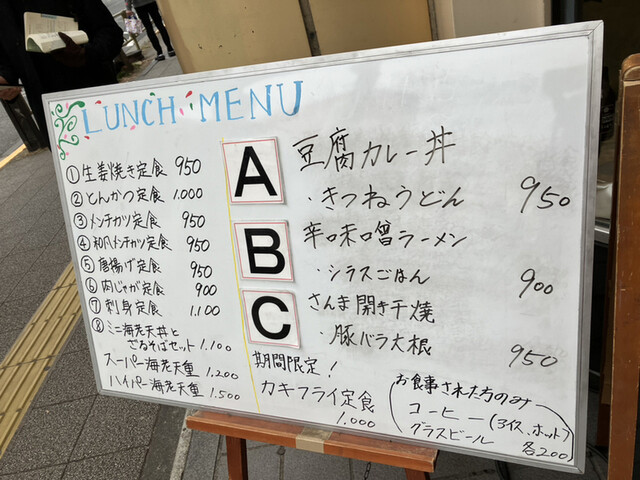 LUNCH MENU
①生姜焼き定食 950
②とんかつ定食 1.000
③メンチカツ定食 950
④和風メンチカツ定食 950
⑤唐揚げ定食 950
⑥肉じゃが定食 900
⑦刺身定食 1.100
⑧ミニ海老天丼と
ざるそばセット 1.100
スーパー海老天重 1.200
ハイパー海老天重 1.500
A
豆腐カレー丼
・きつねうどん 950
B
辛味噌ラーメン
・シラスごはん 900
C
さんま開き干焼
・豚バラ大根 950
期間限定!
カキフライ定食
1.000
お食事された方のみ
コーヒー(アイス、ホット)
グラスビール 各200